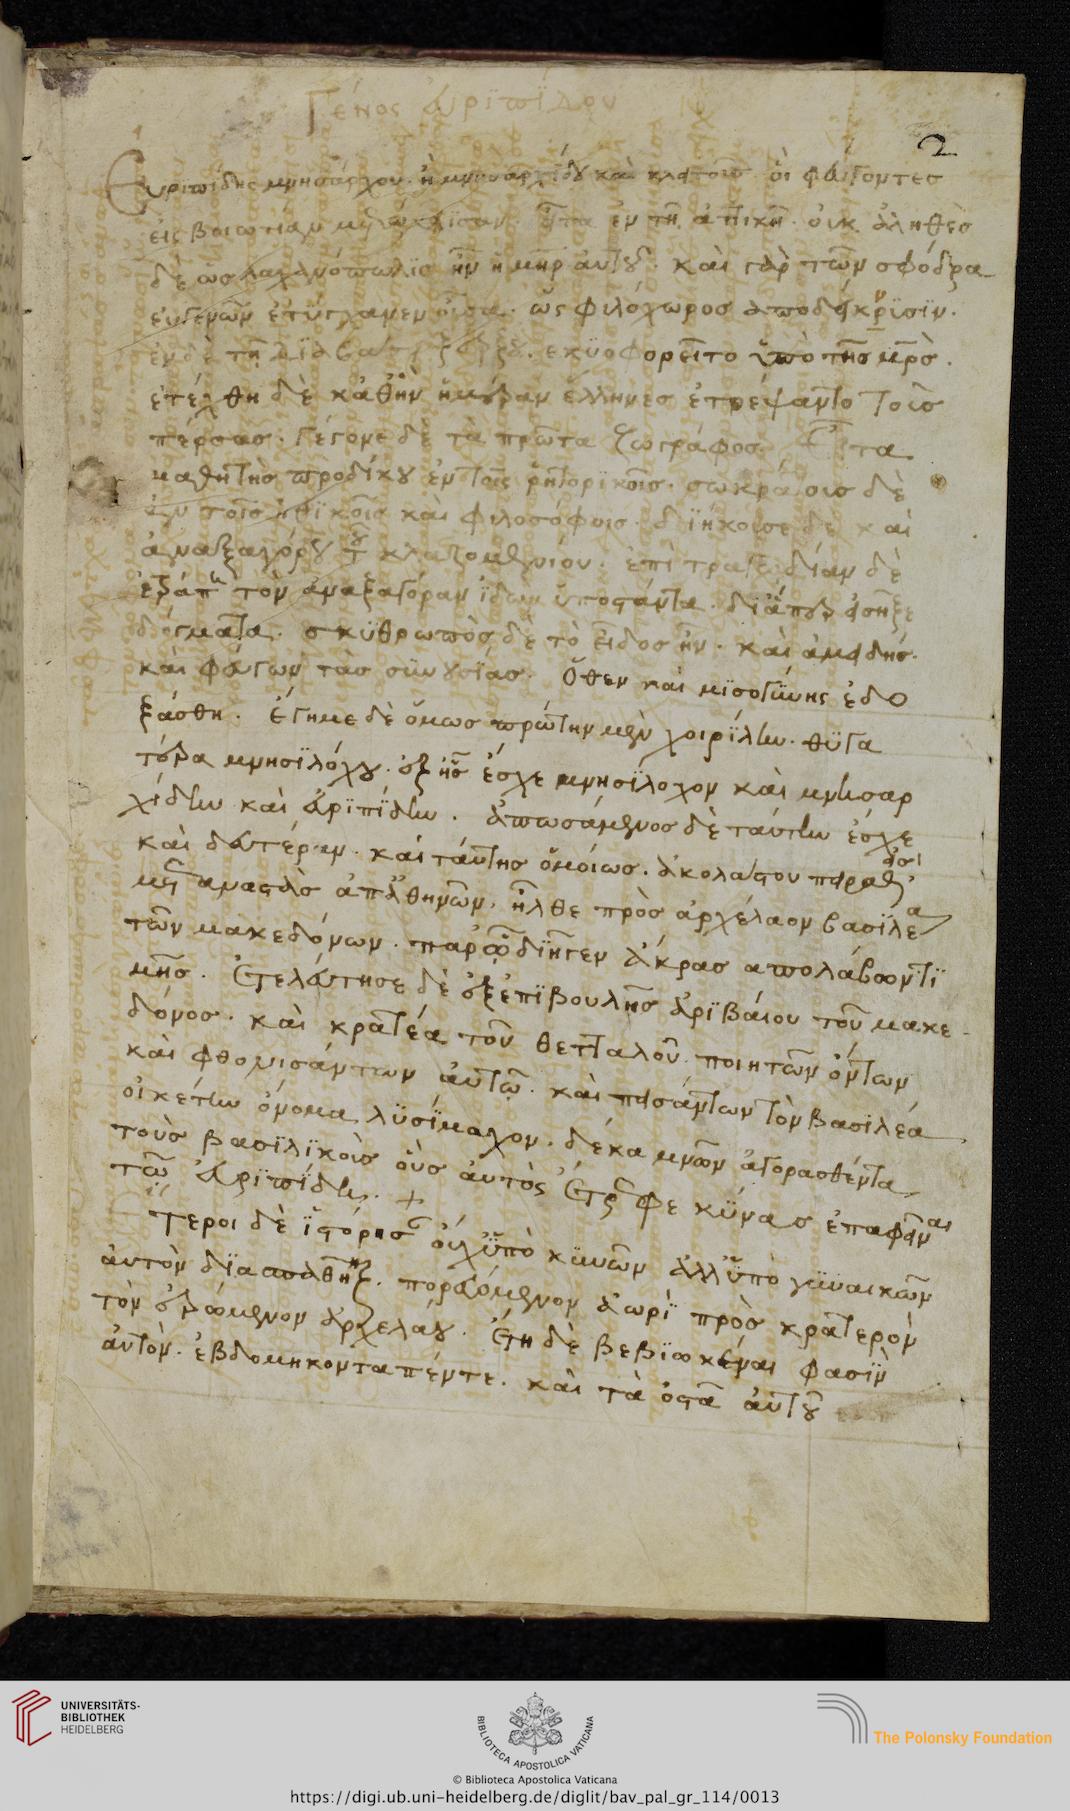 Γένος Εὐριπίδου
2
Εὐριπίδης μνησάρχου ἢ μνησαρχίδου καὶ κλειτοῦς. οἳ φεύγοντες
εἰς βοιωτίαν μετώκησαν. εἶτα ἐν τῇ ἀττικῇ. οὐκ ἀληθὲς
δὲ ὡς λαχανόπωλις ἦν ἡ μηρ αὐτοῦ. καὶ γὰρ τῶν σφόδρα
εὐγενῶν ἐτύγχανεν οὖσα. ὡς φιλόχωρος ἀποδείκνυσιν.
ἐν δὲ τῇ διαβάσει ξέρξου. ἐκυοφορεῖτο ὑπὸ τῆς μρς.
ἐτέχθη δὲ καθ' ἣν ἡμέραν ἕλληνες ἐτρέψαντο τοὺς
πέρσας. Γέγονε δὲ τὰ πρῶτα ζωγράφος. Εἶτα
μαθητὴς προδίκου ἐν τοῖς ῥητορικοῖς. σωκράτους δὲ
ἐν τοῖς ἠθικοῖς καὶ φιλοσόφοις. διήκουσε δὲ καὶ
ἀναξαγόρου τοῦ κλαζομενίου. ἐπὶ τραγωδίαν δὲ
ἐτράπη τὸν ἀναξαγόραν ἰδὼν ὑποστάντα. δι' ἅπερ εἰσῆξε
δόγματα. σκυθρωπὸς δὲ τὸ εἶδος ἦν. καὶ ἀμειδής.
καὶ φεύγων τὰς συνουσίας. ὅθεν καὶ μισογύνης ἐδο
ξάσθη. ἔγημε δὲ ὅμως πρώτην μὲν χοιρίλην. θυγα
τέρα μνησιλόχου. ἐξ ἧς ἔσχε μνησίλοχον καὶ μνησαρ
χίδην καὶ εὐριπίδην. ἀπωσάμενος δὲ ταύτην ἔσχε
καὶ δευτέραν. καὶ ταύτης ὁμοίως. ἀκολάστου πειραθείς
μεταναστὰς ἀπ' ἀθηνῶν. ἦλθε πρὸς ἀρχέλαον βασιλέα
τῶν μακεδόνων. παρ' ᾧ διῆγεν ἄκρας ἀπολάβων τι
μῆς. ἐτελεύτησε δὲ ἐξ ἐπιβουλῆς ἀριβαίου τοῦ μακε
δόνος. καὶ κρατέα τοῦ θετταλοῦ. ποιητῶν ὄντων
καὶ φθονησάντων αὐτῷ. καὶ πεισάντων τὸν βασιλέα
οἰκέτην ὄνομα λυσίμαχον. δέκα μνῶν ἀγορασθέντα
τοὺς βασιλικοὺς οὓς αὐτὸς ἔτρεφε κύνας ἐπαφεῖναι
τῷ εὐριπίδη. +
ἕτεροι δὲ ἱστόρησαν οὐχ ὑπὸ κυνῶν ἀλλ' ὑπὸ γυναικῶν
αὐτὸν διασπασθῆναι. πορευόμενον ἀωρὶ πρὸς κρατερὸν
τὸν ἐρώμενον ἀρχελάου. ἔτη δὲ βεβιωκέναι φασὶν
αὐτὸν. ἑβδομηκονταπέντε. καὶ τὰ ὀστᾶ αὐτοῦ
UNIVERSITÄTS-
BIBLIOTHEK
HEIDELBERG
BIBLIOTECA APOSTOLICA VATICANA
The Polonsky Foundation
© Biblioteca Apostolica Vaticana
https://digi.ub.uni-heidelberg.de/diglit/bav_pal_gr_114/0013